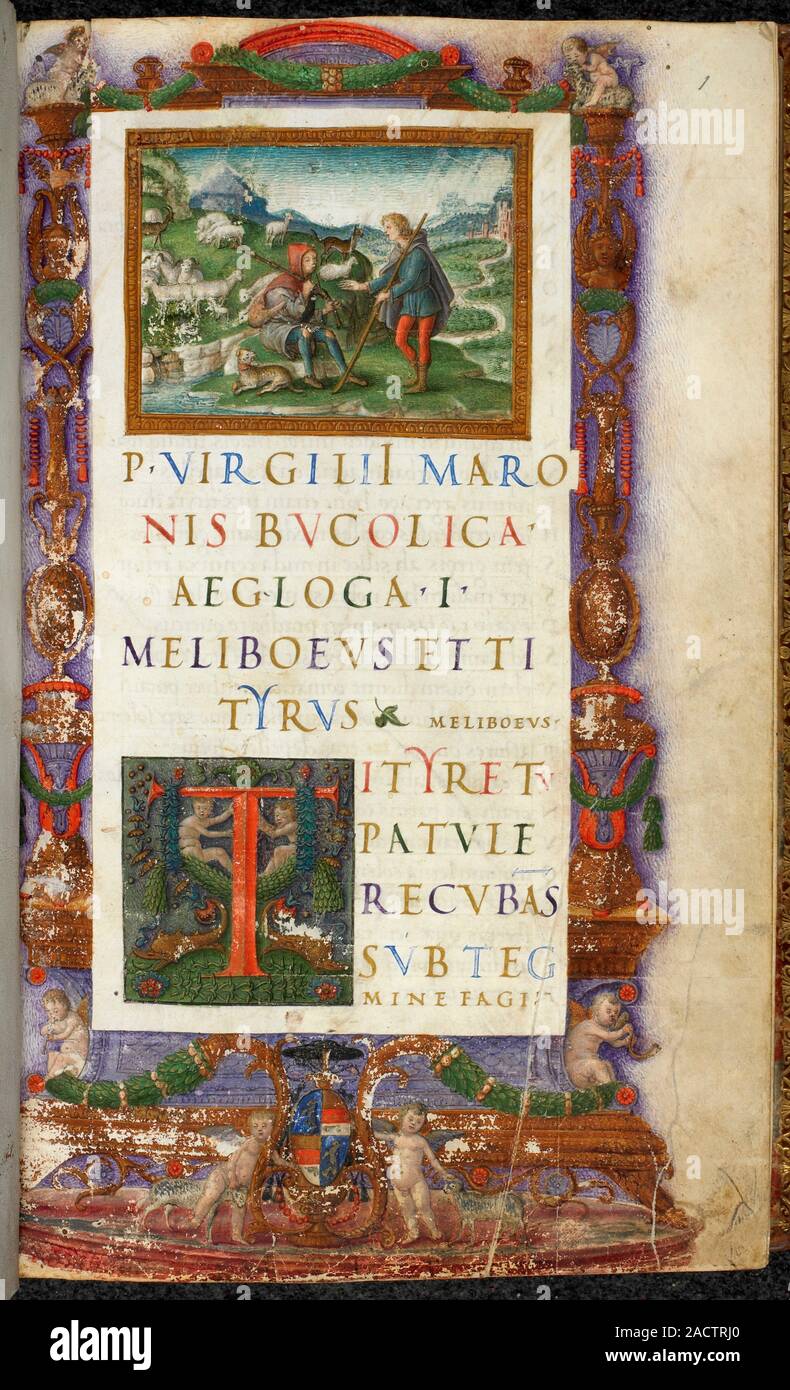 1
P · VIRGILII MARO
NIS BVCOLICA ·
AEGLOGA · I ·
MELIBOEVS ET TI
TYRVS MELIBOEVS ·
TITYRE TV
PATVLE
RECVBĀS
SVB TEG
MINE FAGI
alamy
Image ID: 2ACTRJ0
www.alamy.com